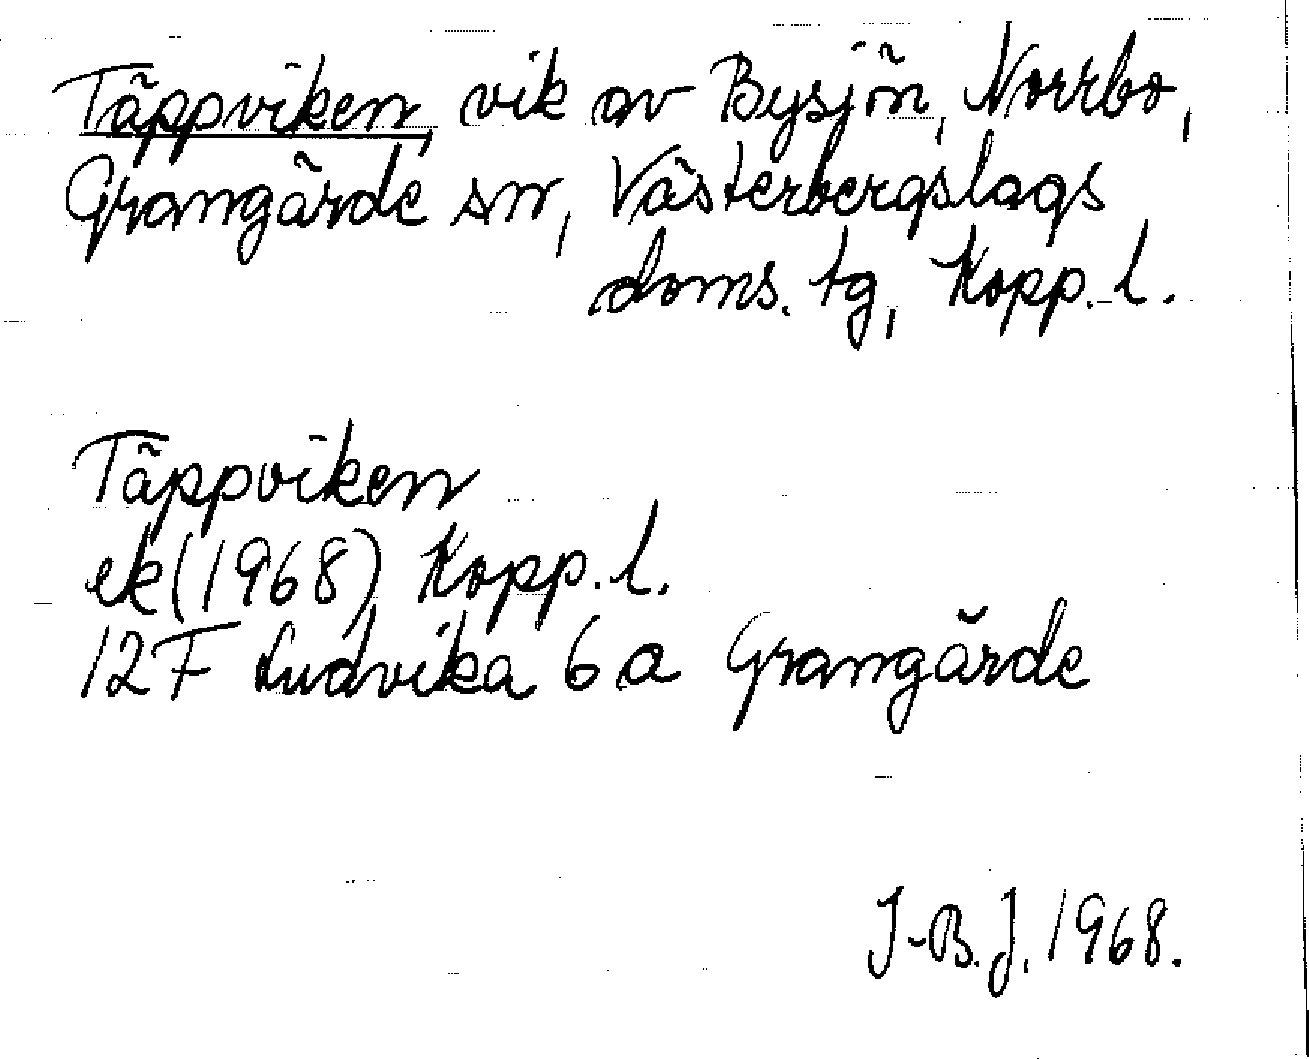 Täppviken, vik av Bysjön, Norrbo,
Grangärde sn, Västerbergslags
doms. tg, Kopp. l.
Täppviken
ek (1968) Kopp. l.
12F Ludvika 6 a Grangärde
I-B. J. 1968.